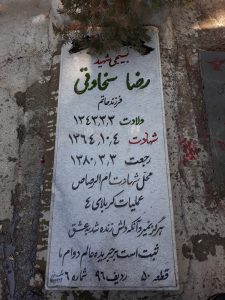 بسیجی شهید
رضا سخاوتی
فرزند حاتم
ولادت ۱۳۴۳.۳.۳
شهادت ۱۳۶۴.۱۰.۴
رجعت ۱۳۸۰.۳.۳
محل شهادت ام الرصاص
عملیات کربلای ۴
هرگز نمیرد آنکه دلش زنده شد به عشق
ثبت است بر جریده عالم دوام ما
قطعه ۵۰ ردیف ۹۶ شماره ۶